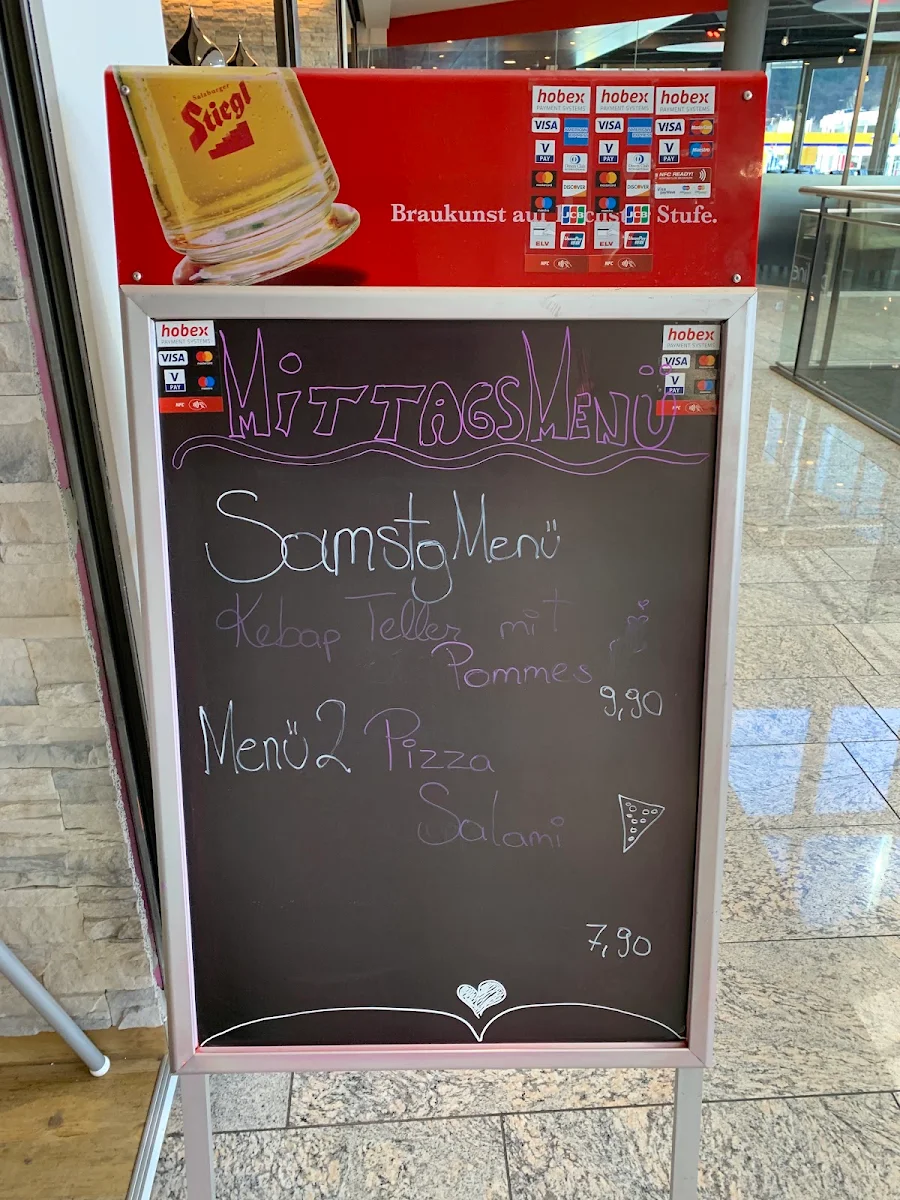 Salzburger
Stiegl
hobex hobex hobex
PAYMENT SYSTEMS PAYMENT SYSTEMS PAYMENT SYSTEMS
VISA AMERICAN EXPRESS VISA AMERICAN EXPRESS VISA MasterCard
V PAY V PAY V PAY Maestro
DISCOVER DISCOVER NFC READY!
Braukunst auf Stufe.
JCB JCB
ELV UnionPay ELV UnionPay
NFC NFC
hobex hobex
PAYMENT SYSTEMS PAYMENT SYSTEMS
VISA VISA
V PAY V PAY
NFC NFC
MITTAGSMENÜ
Samstg Menü
Kebap Teller mit
Pommes
9,90
Menü 2 Pizza
Salami
7,90